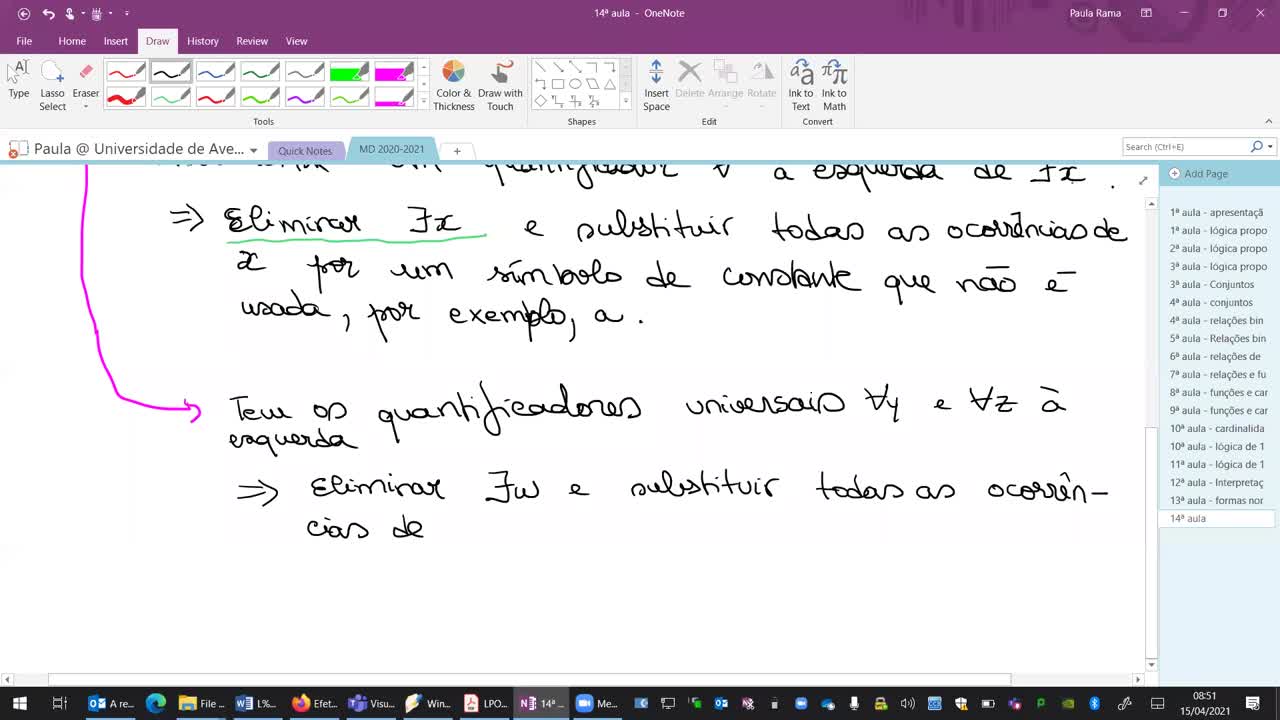 14ª aula - OneNote
Paula Rama
File Home Insert Draw History Review View
Type
Lasso Select
Eraser
Color & Thickness
Draw with Touch
Insert Space
Delete Arrange Rotate
Ink to Text
Ink to Math
Tools Shapes Edit Convert
Paula @ Universidade de Ave... Quick Notes MD 2020-2021 +
Search (Ctrl+E)
Add Page
um quantificador ∀ à esquerda de ∃x.
⇒ Eliminar ∃x e substituir todas as ocorrências de
x por um símbolo de constante que não é
usada, por exemplo, a.
Tem os quantificadores universais ∀y e ∀z à
esquerda
⇒ Eliminar ∃w e substituir todas as ocorrên-
cias de
1ª aula - apresentaçã
1ª aula - lógica propo
2ª aula - lógica propo
3ª aula - lógica propo
3ª aula - Conjuntos
4ª aula - conjuntos
4ª aula - relações bin
5ª aula - Relações bin
6ª aula - relações de
7ª aula - relações e fu
8ª aula - funções e car
9ª aula - funções e car
10ª aula - cardinalida
10ª aula - lógica de 1
11ª aula - lógica de 1
12ª aula - Interpretaç
13ª aula - formas nor
14ª aula
A re...
File ...
L%...
Efet...
Visu...
Win...
LPO...
14ª ...
Me...
08:51
15/04/2021